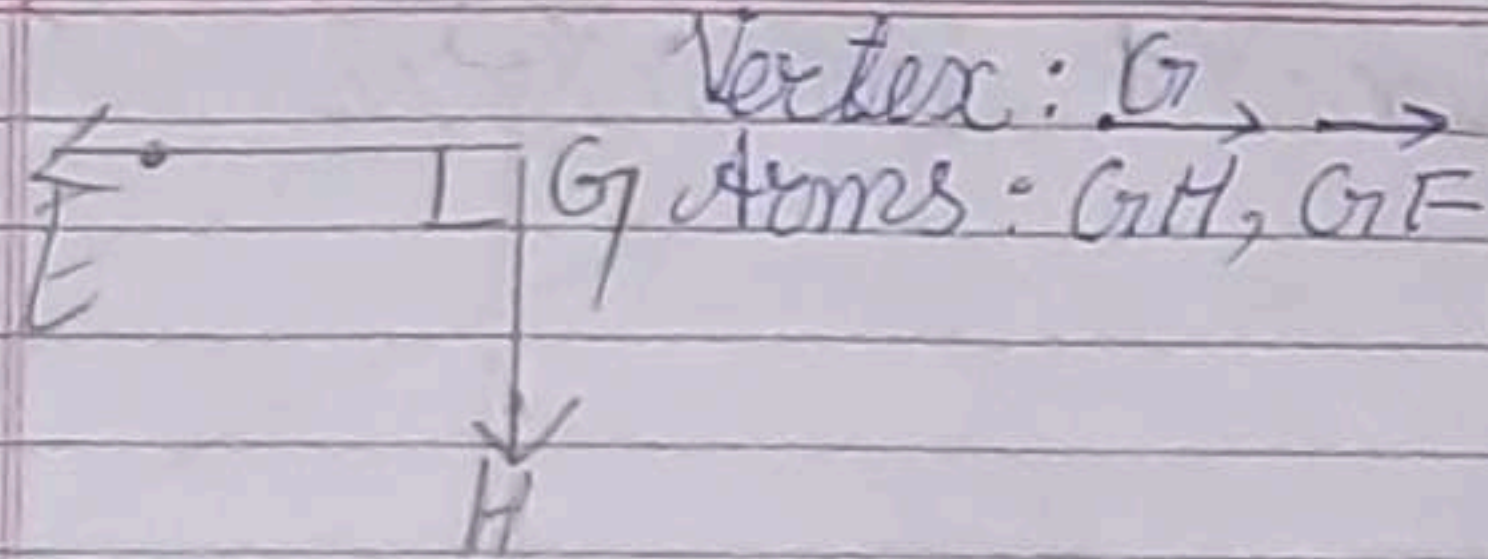 Vertex : G
G Arms : GH, GF
E
H